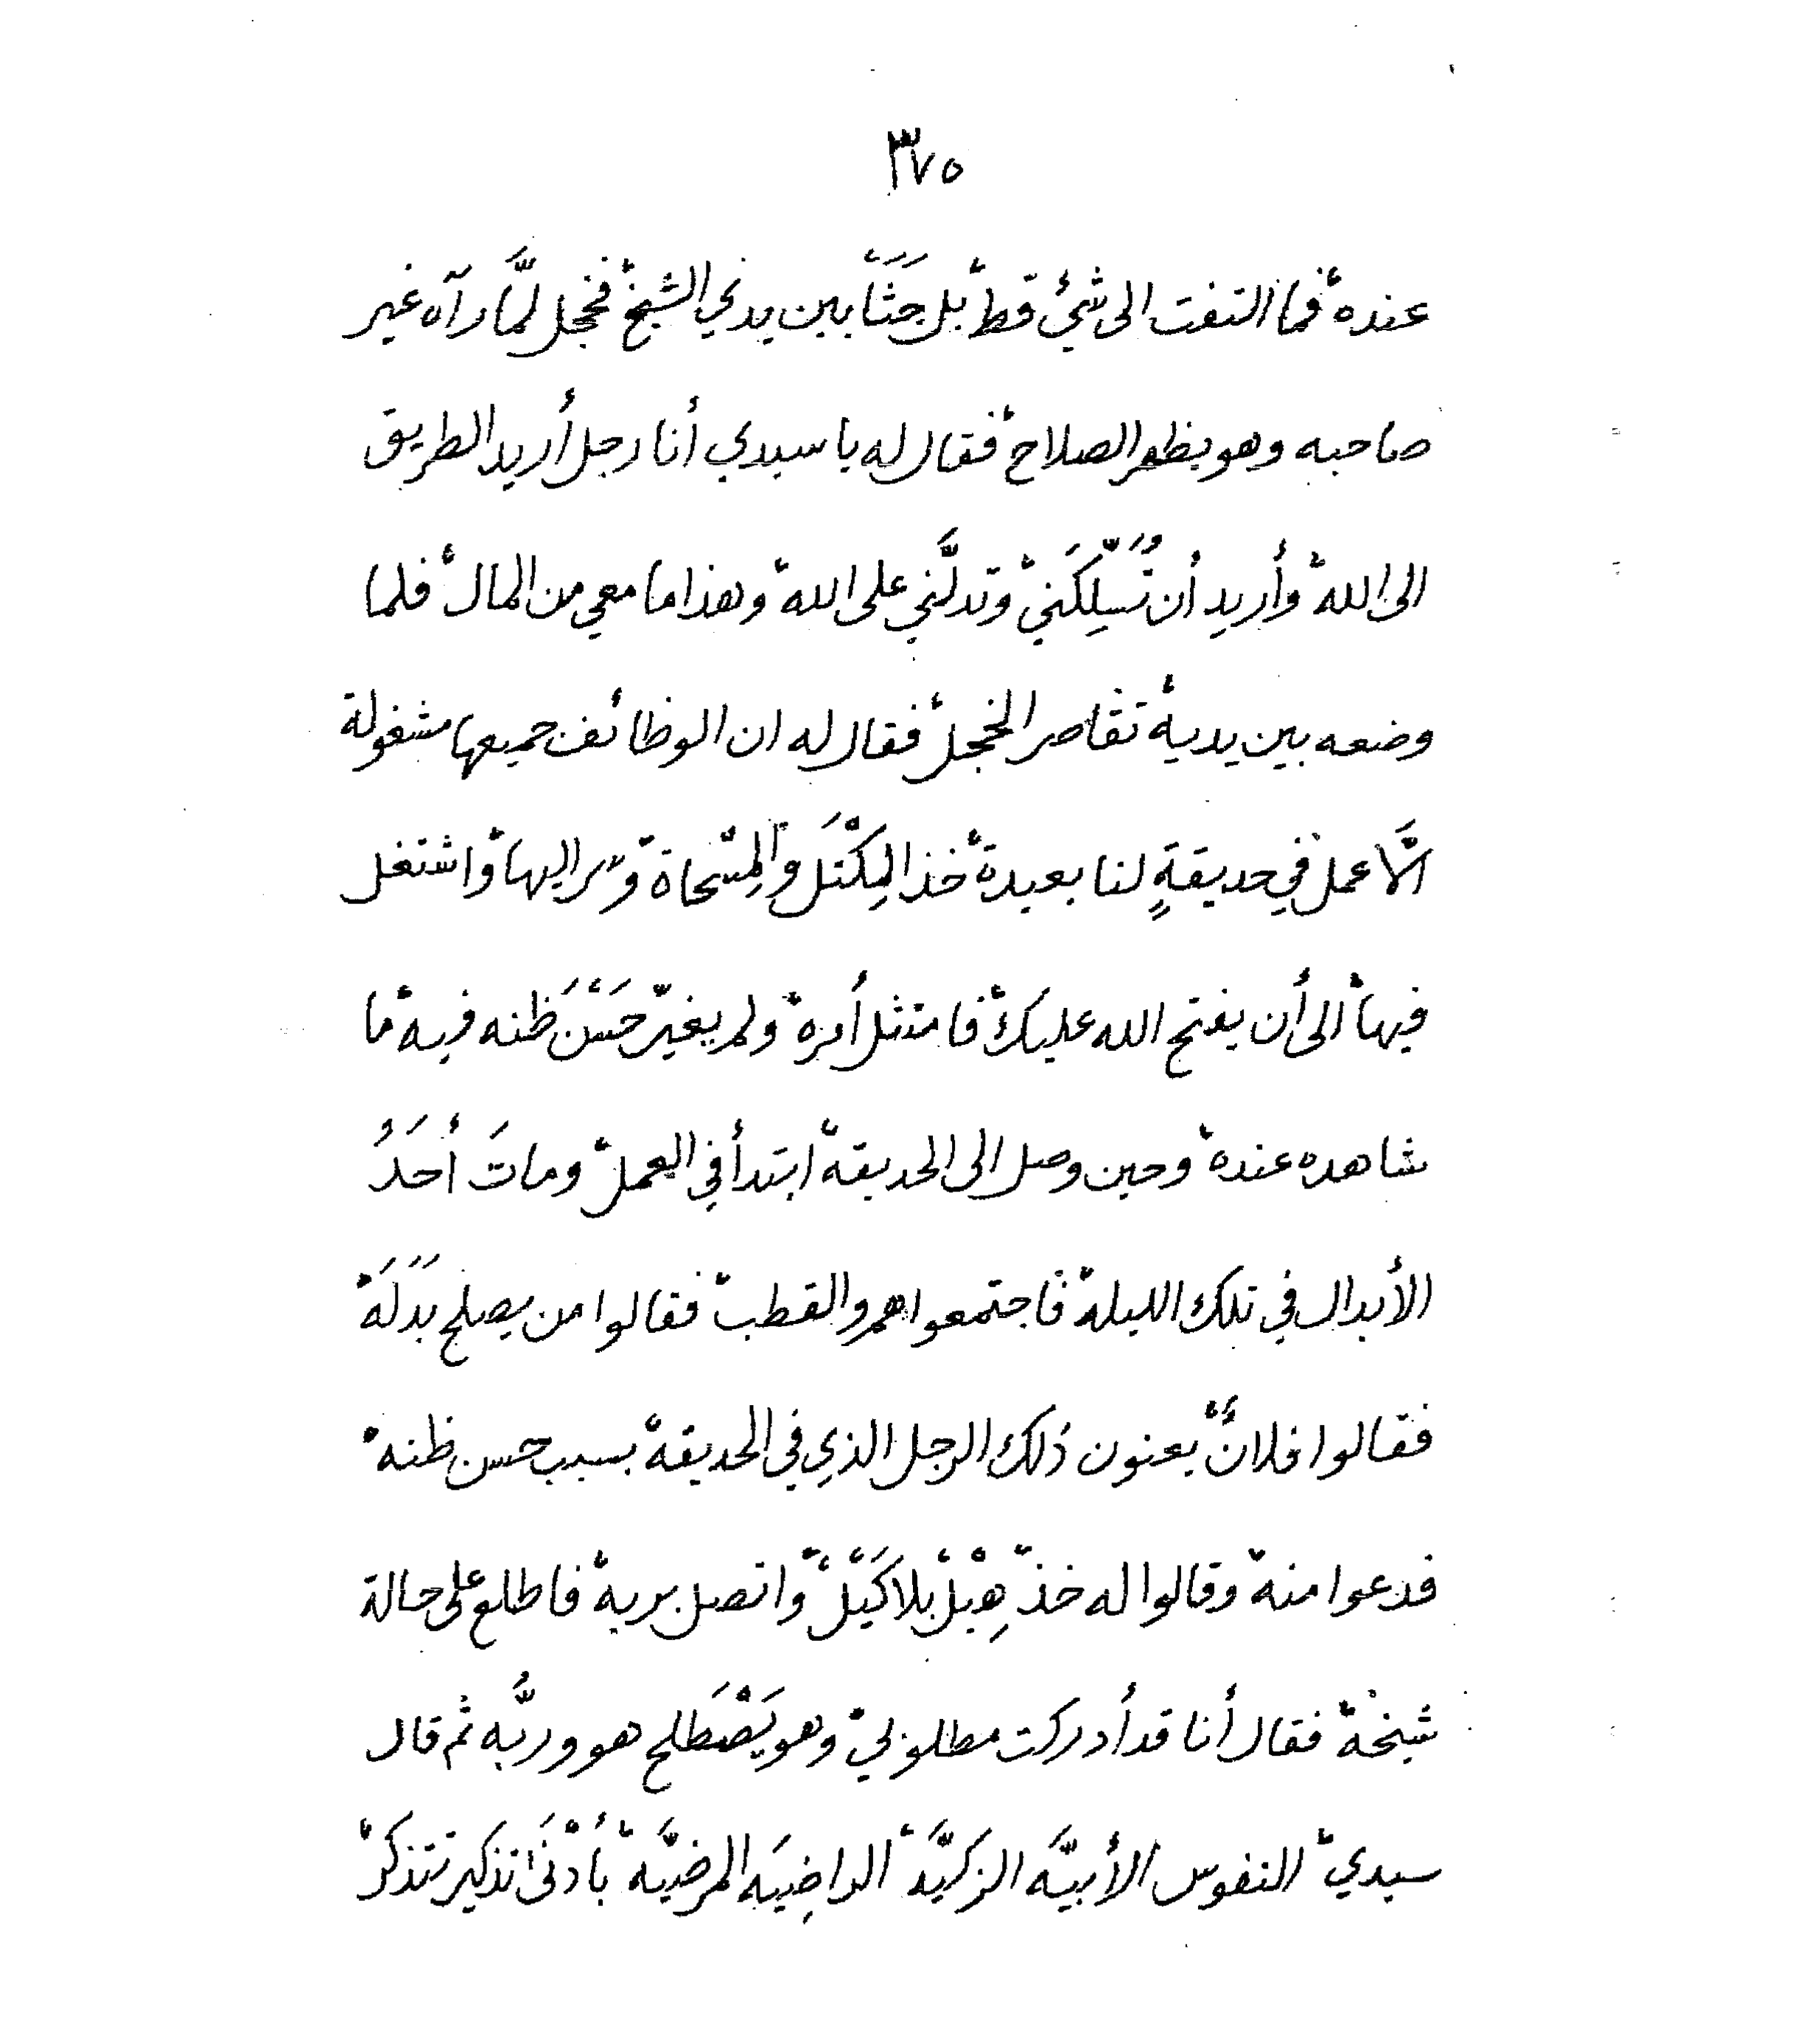 ٣٧٥
عنده فما التفت الى شيْ قط بل جَثَا بين يدي الشيخ فخجل لمَّا رآه غير
صاحبه وهو يظهر الصلاح فقال له يا سيدي أنا رجل أريد الطريق
الى الله وأريد أن تُسَلِّكَني وتدلَّني على الله وهذا ما معي من المال فلما
وضعه بين يديه تقاصر الخجل فقال له ان الوظائف جميعها مشغولة
الَّا عمل في حديقةٍ لنا بعيدة خذ المِكْتَل والمِسْحاة وسر اليها واشتغل
فيها الى أن يفتح الله عليك فامتثل أمره ولم يغيّر حَسَنَ ظنه فيه ما
شاهده عنده وحين وصل الى الحديقة ابتدأ في العمل وماتَ أحَدُ
الأبدال في تلك الليلة فاجتمعوا هم والقطب فقالوا من يصلح بَدَلَهْ
فقالوا فلانٌ يعنون ذلك الرجل الذي في الحديقة بسبب حسن ظنه
فدعوا منه وقالوا له خذ هِبْلْ بْلا كَيْلْ واتصل بربه فاطلع على حالة
شيخهْ فقال أنا قد أدركت مطلوبي وهو يَصْطَلح هو وربُّه ثم قال
سيدي النفوس الأبيَّه الزكيَّه الراضِيَه المرضيَّه بأدْنَى تذكير تتذكر